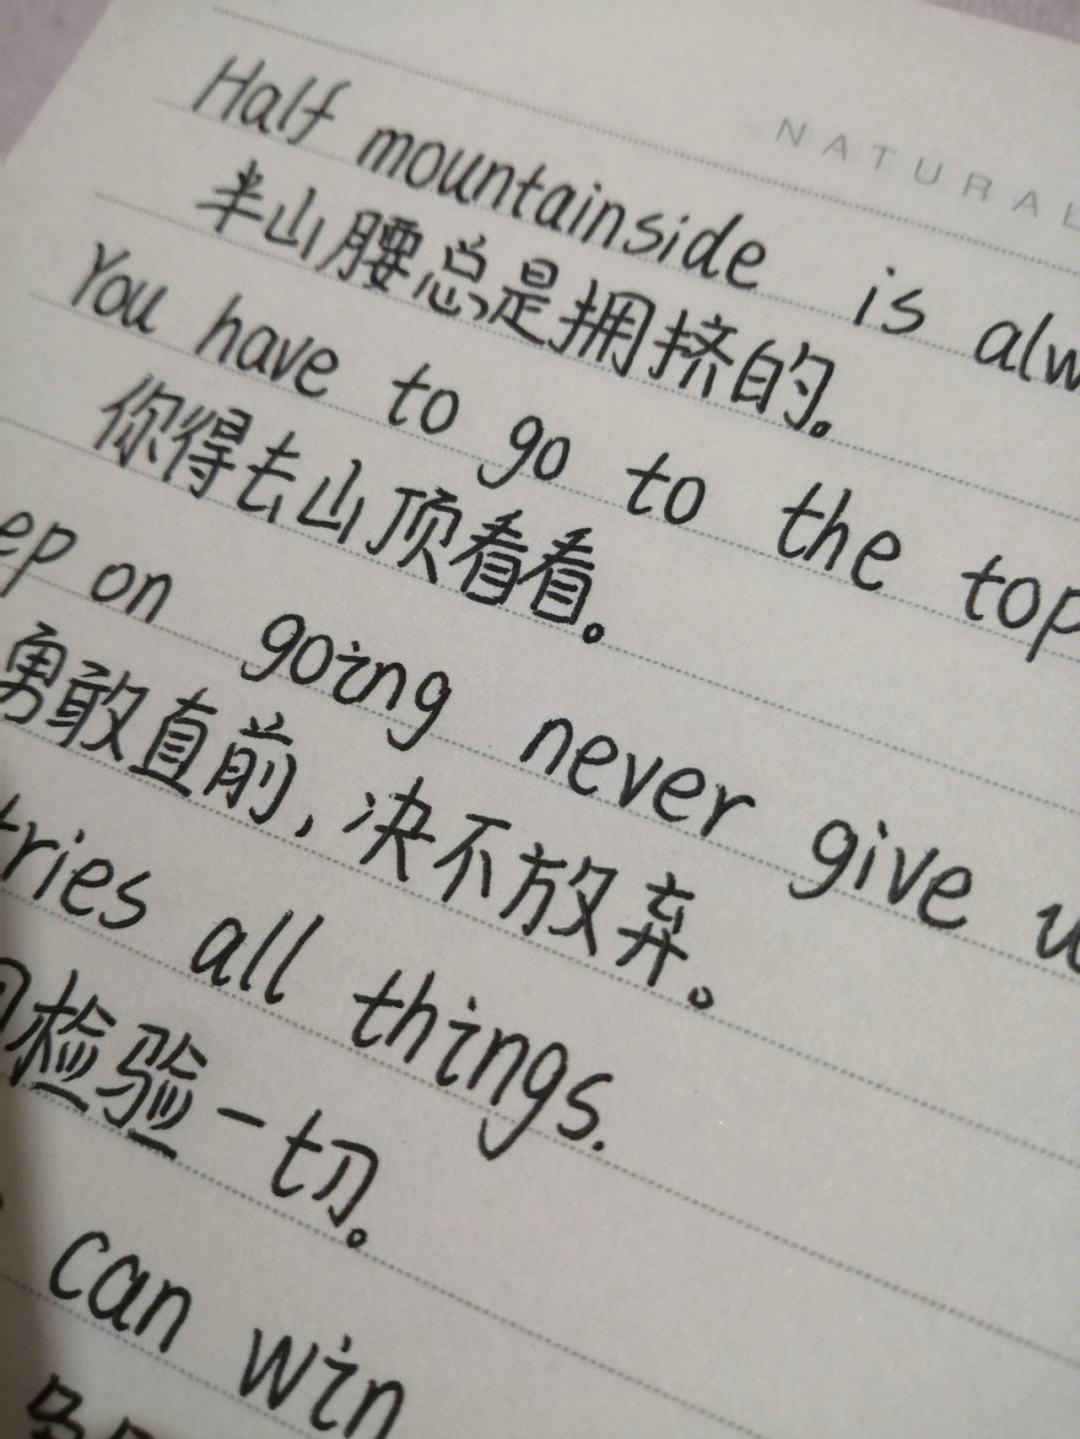 NATURAL
Half mountainside is alw
半山腰总是拥挤的。
You have to go to the top
你得去山顶看看。
ep on going never give u
勇敢直前,决不放弃。
tries all things.
检验一切。
can win